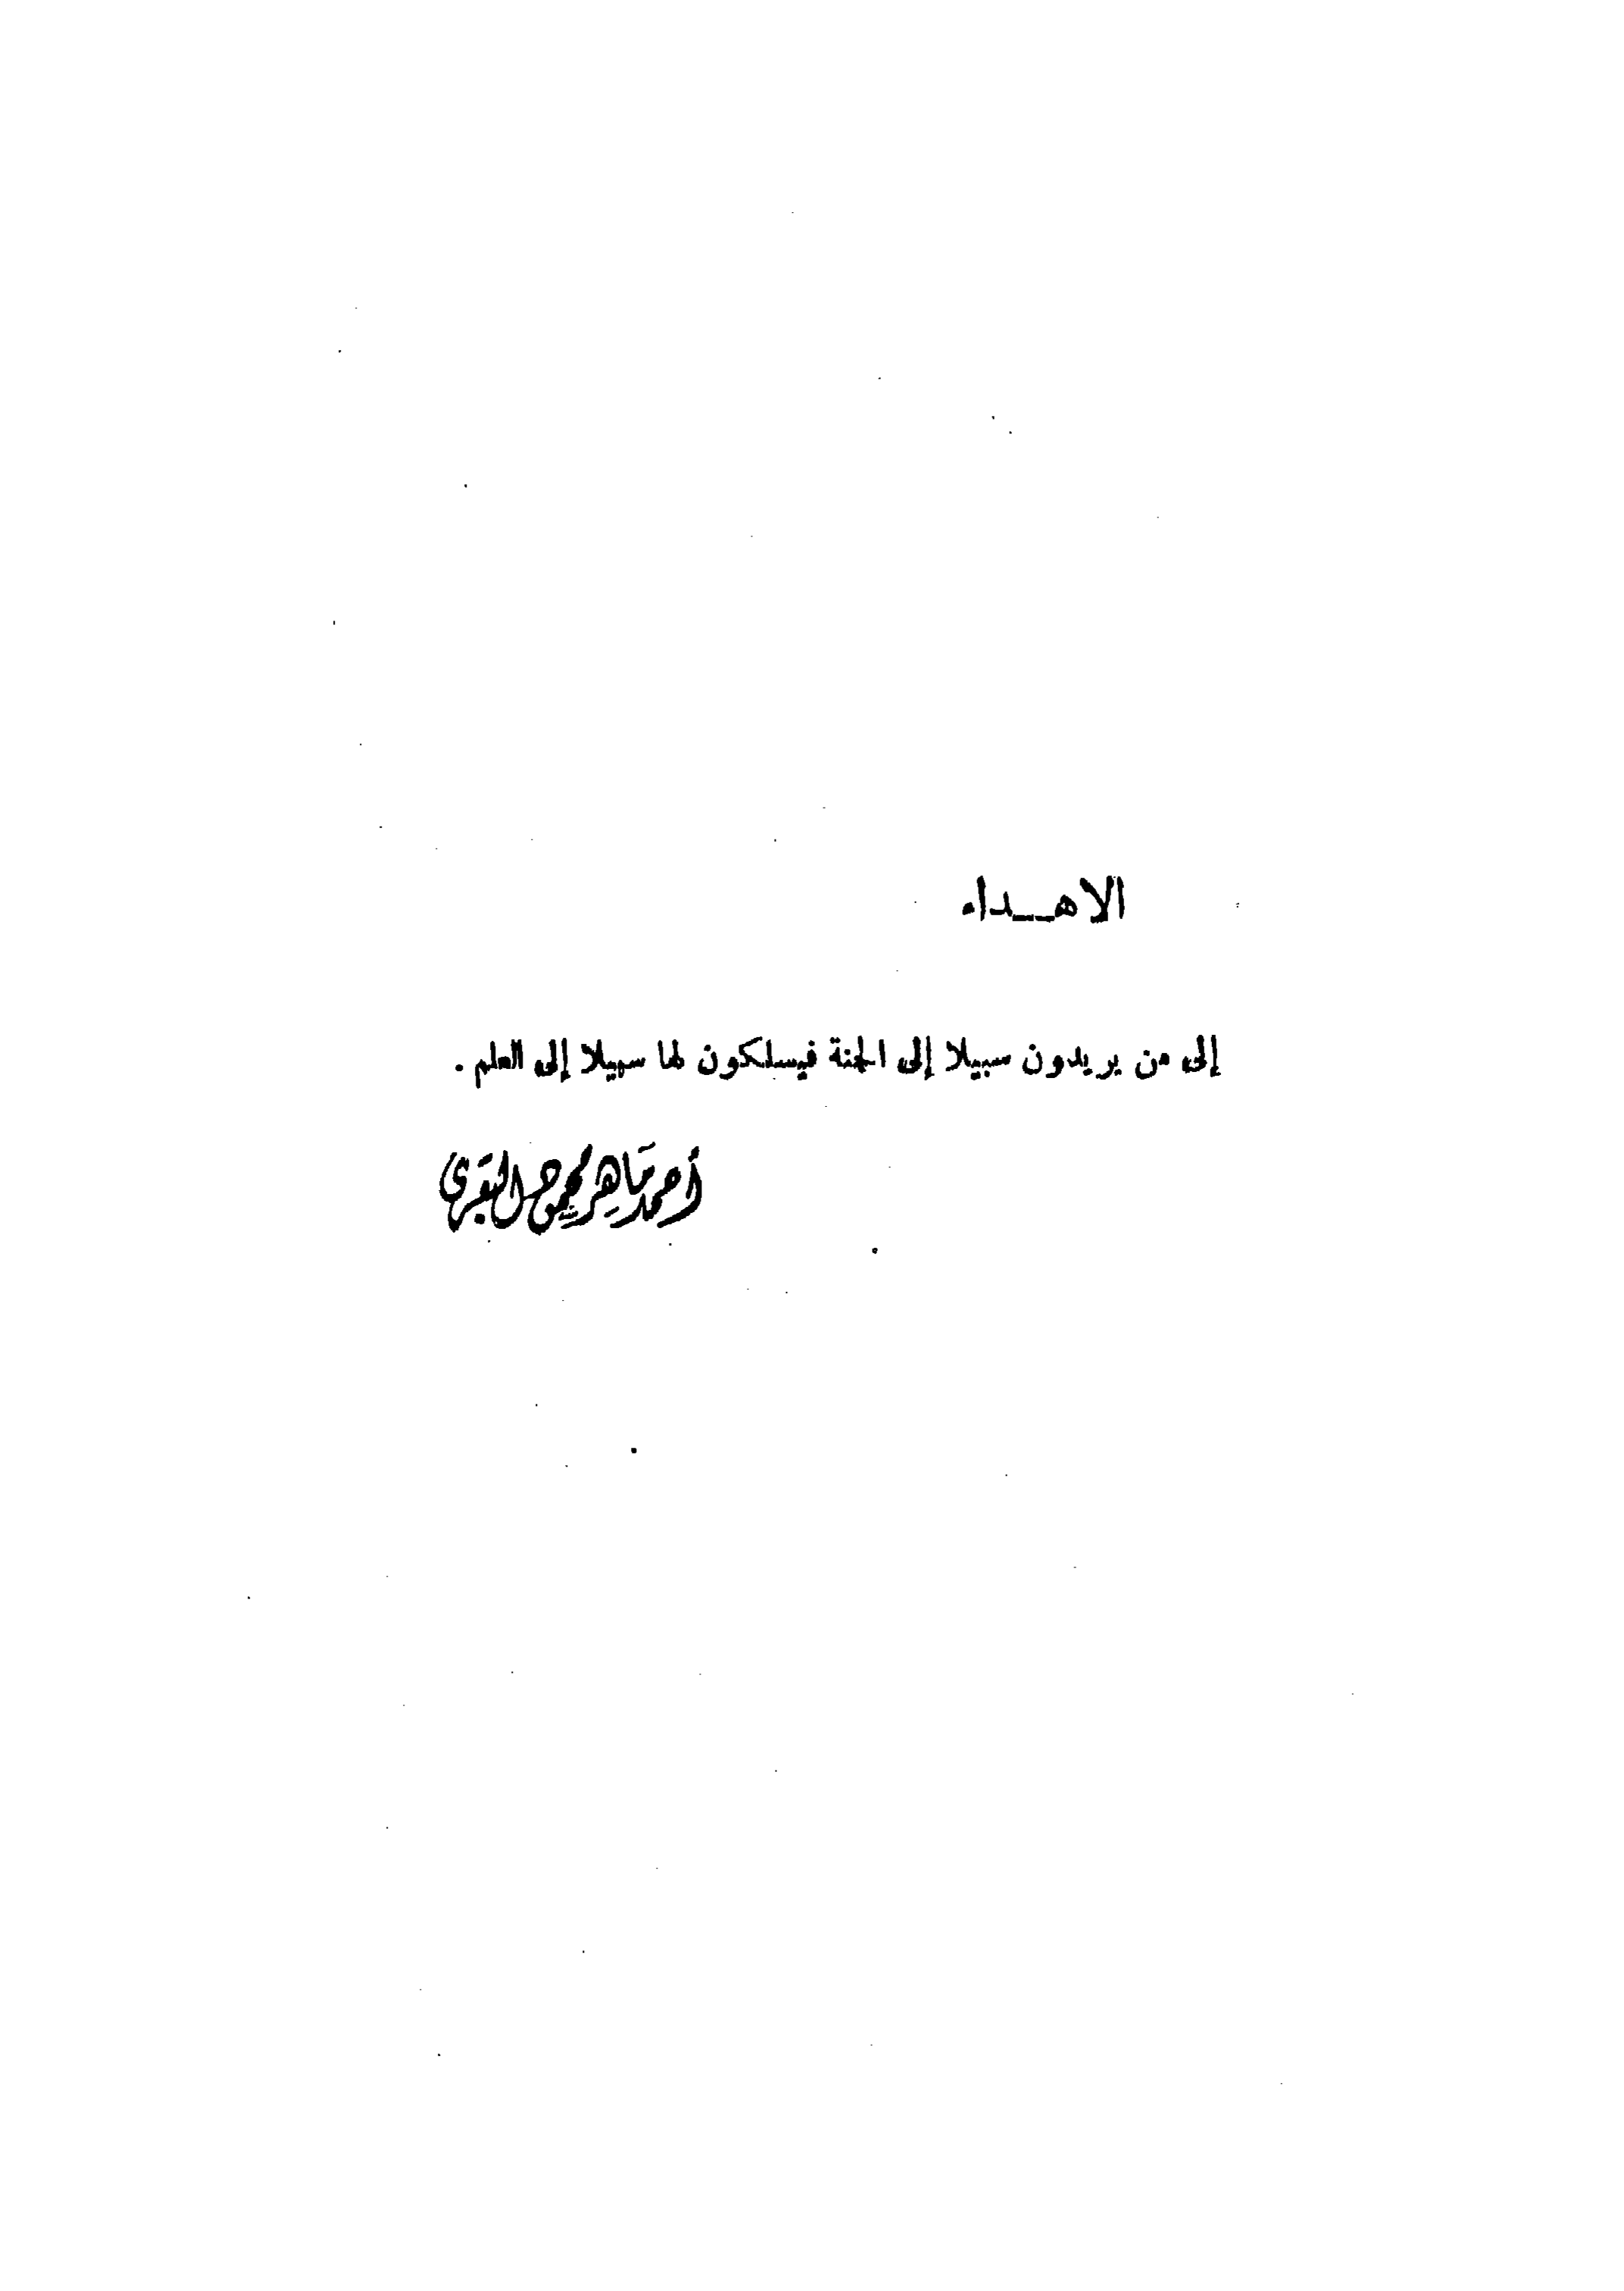 الاهـداء
إلى من يريدون سبيلا إلى الجنة فيسلكون لها سبيلا إلى العلم .
أحمد ماهر محمود البقري